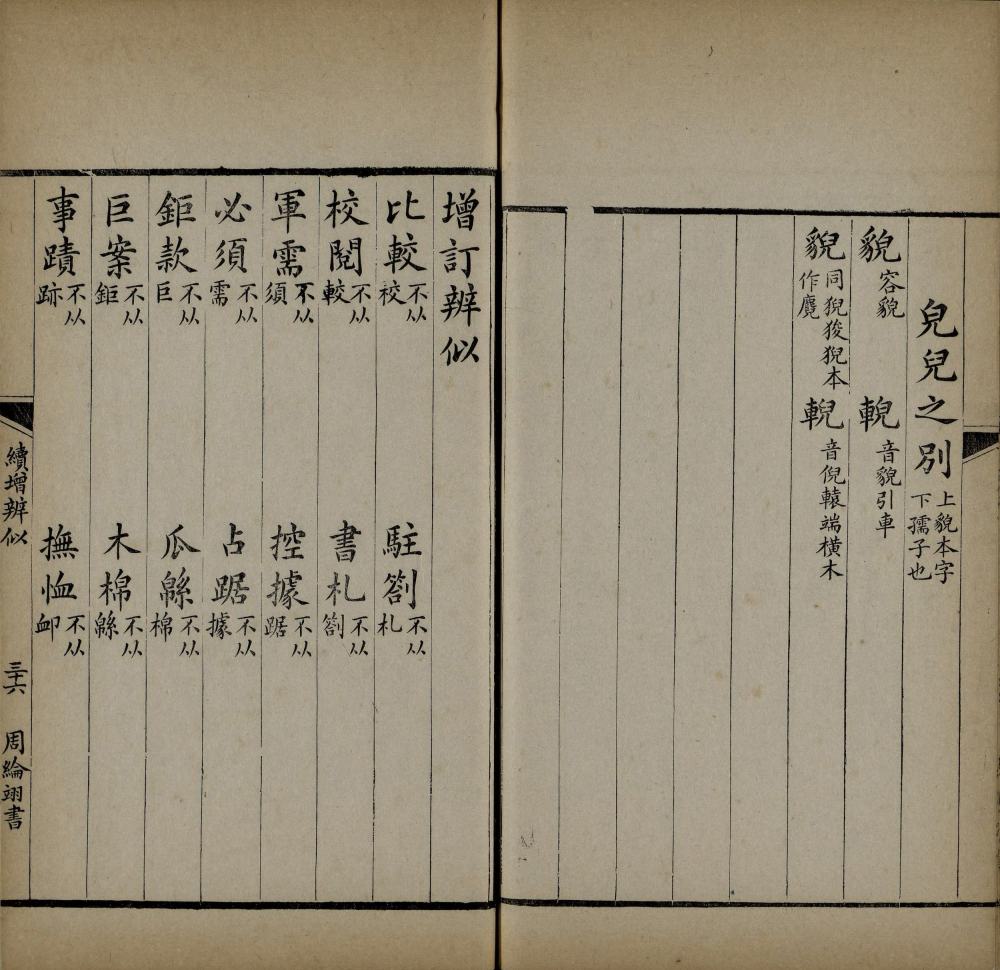 皃兒之別 上貌本字下孺子也
貌 容貌 音貌引車
貎 同猊狻猊本作麑 輗 音倪轅端橫木
增訂辨似
比較 不从校 駐劄 不从札
校閱 不从較 書札 不从劄
軍需 不从須 控據 不从踞
必須 不从需 占踞 不从據
鉅款 不从巨 瓜緜 不从棉
巨案 不从鉅 木棉 不从緜
事蹟 不从跡 撫恤 不从卹
續增辨似 三十六 周綸翊書